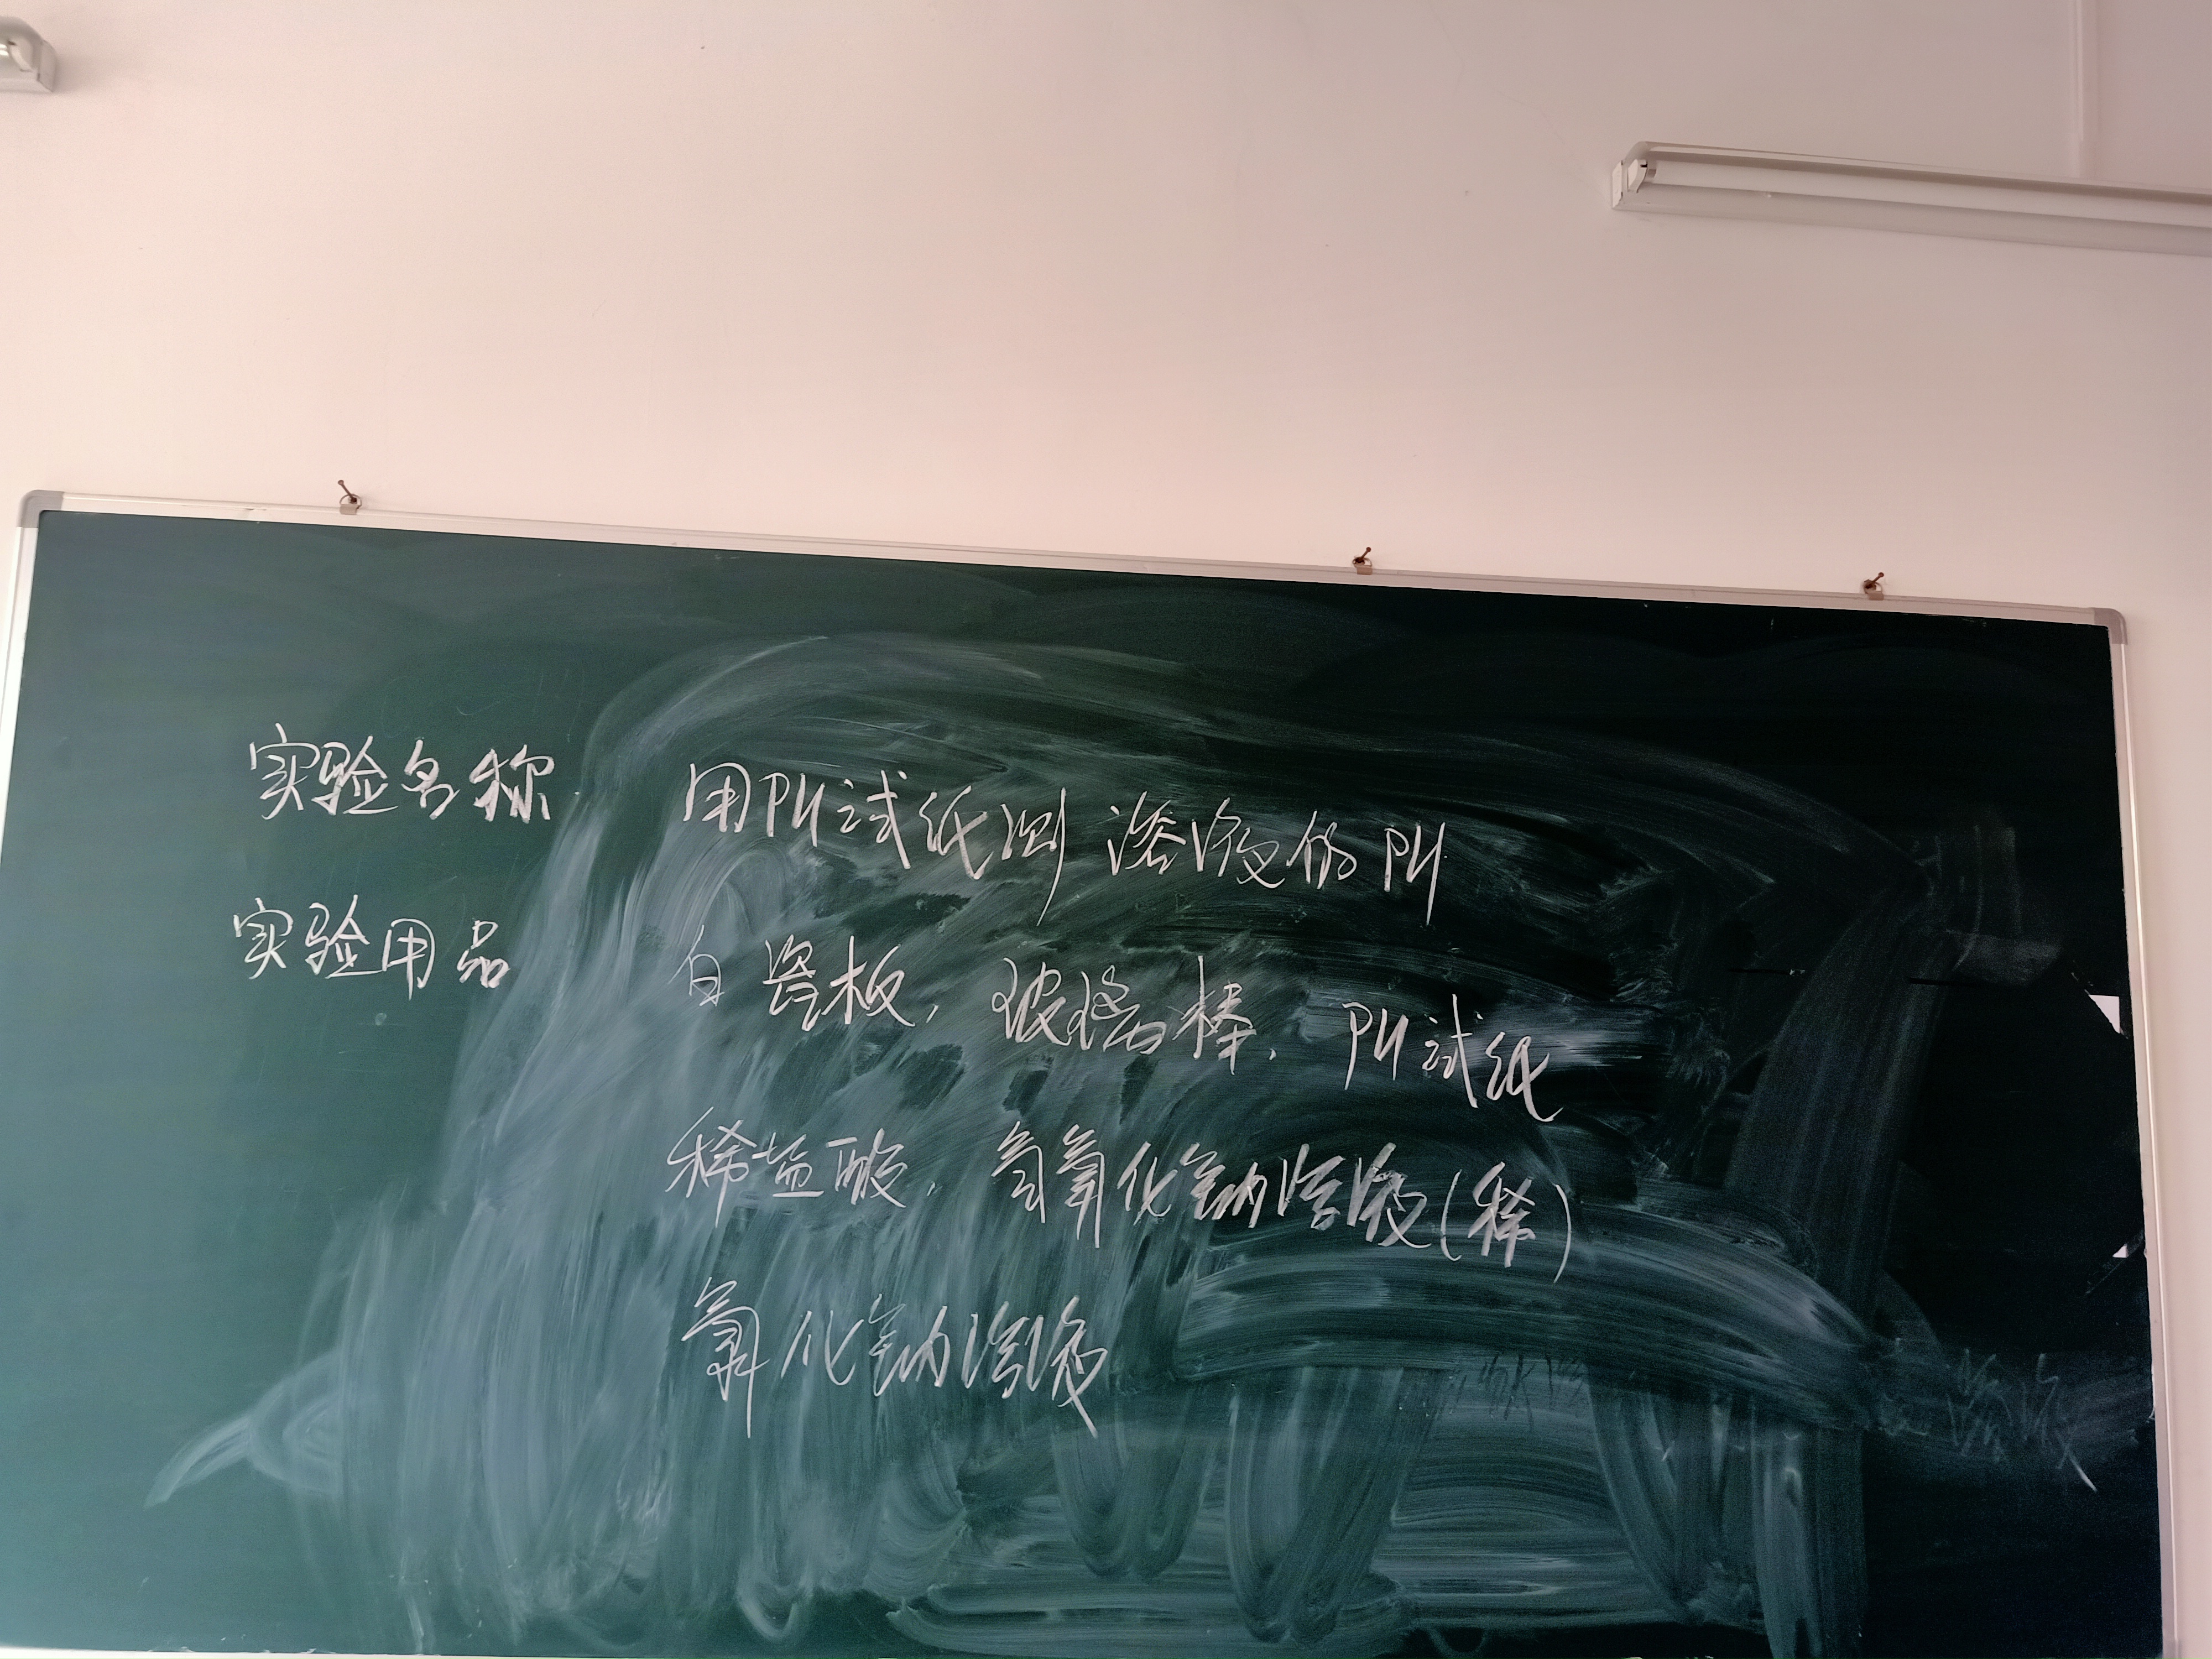 实验名称 用PH试纸测 溶液的PH
实验用品 白瓷板,玻璃棒,PH试纸
稀盐酸,氢氧化钠溶液(稀)
氯化钠溶液